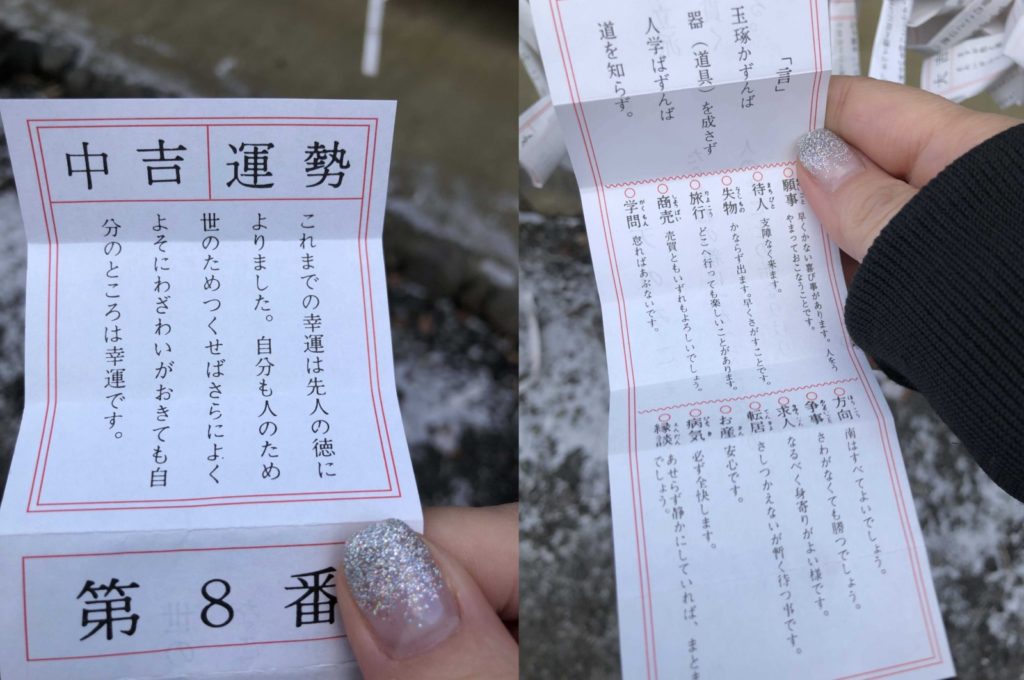 中吉 運勢
これまでの幸運は先人の徳に
よりました。自分も人のため
世のためつくせばさらによく
よそにわざわいがおきても自
分のところは幸運です。
第8番
「言」
玉琢かずんば
器(道具)を成さず
人学ばずんば
道を知らず。
○願事 早くかない喜び事があります。人をう
やまっておこなうことです。
○待人 支障なく来ます。
○失物 かならず出ます。早くさがすことです。
○旅行 どこへ行っても楽しいことがあります。
○商売 売買ともいずれもよろしいでしょう。
○学問 怠ればあぶないです。
○方向 南はすべてよいでしょう。
○争事 さわがなくても勝つでしょう。
○求人 なるべく身寄りがよい様です。
○転居 さしつかえないが暫く待つ事です。
○お産 安心です。
○病気 必ず全快します。
○縁談 あせらず静かにしていれば、まとま
でしょう。